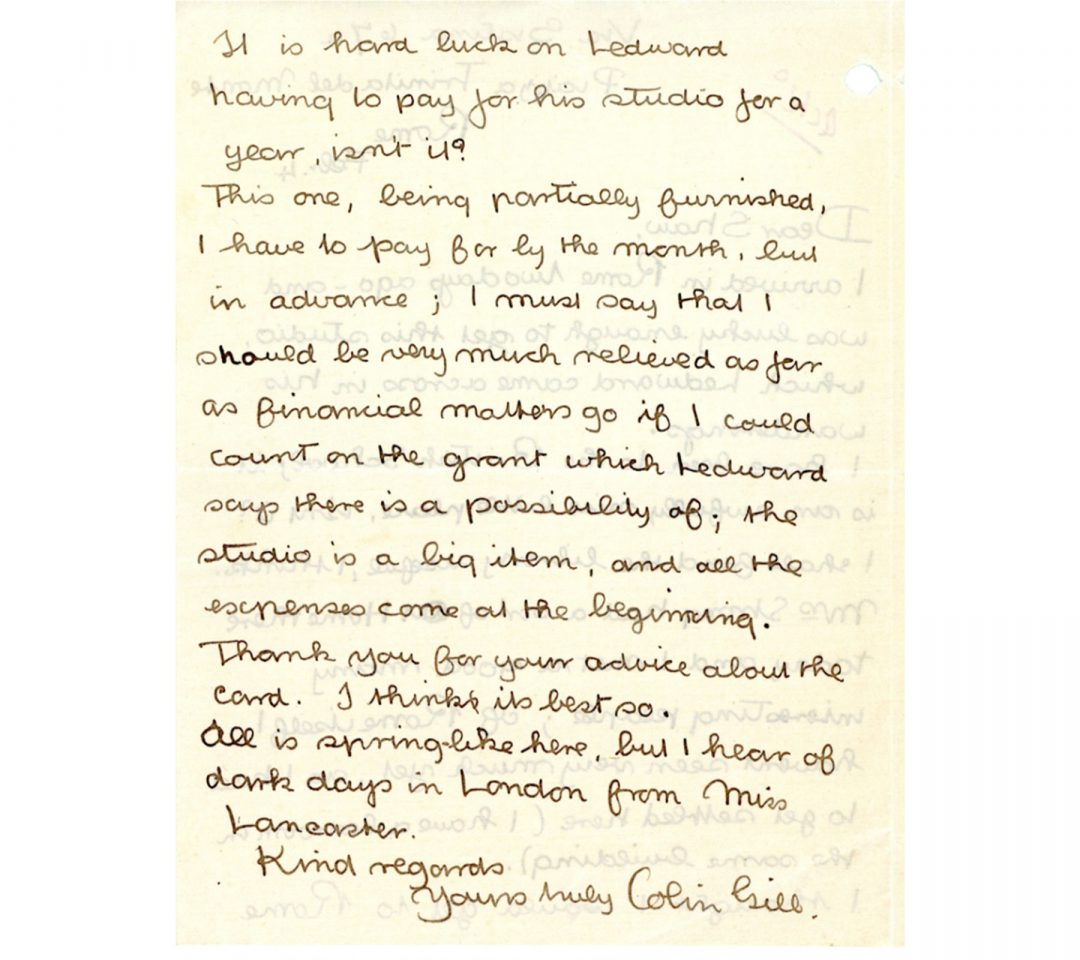 It is hard luck on Ledward
having to pay for his studio for a
year, isn't it?
This one, being partially furnished,
I have to pay for by the month, but
in advance; I must say that I
should be very much relieved as far
as financial matters go if I could
count on the grant which Ledward
says there is a possibility of; the
studio is a big item, and all the
expenses come at the beginning.
Thank you for your advice about the
card. I think its best so.
All is spring-like here, but I hear of
dark days in London from Miss
Lancaster.
Kind regards
Yours truly Colin Gill.